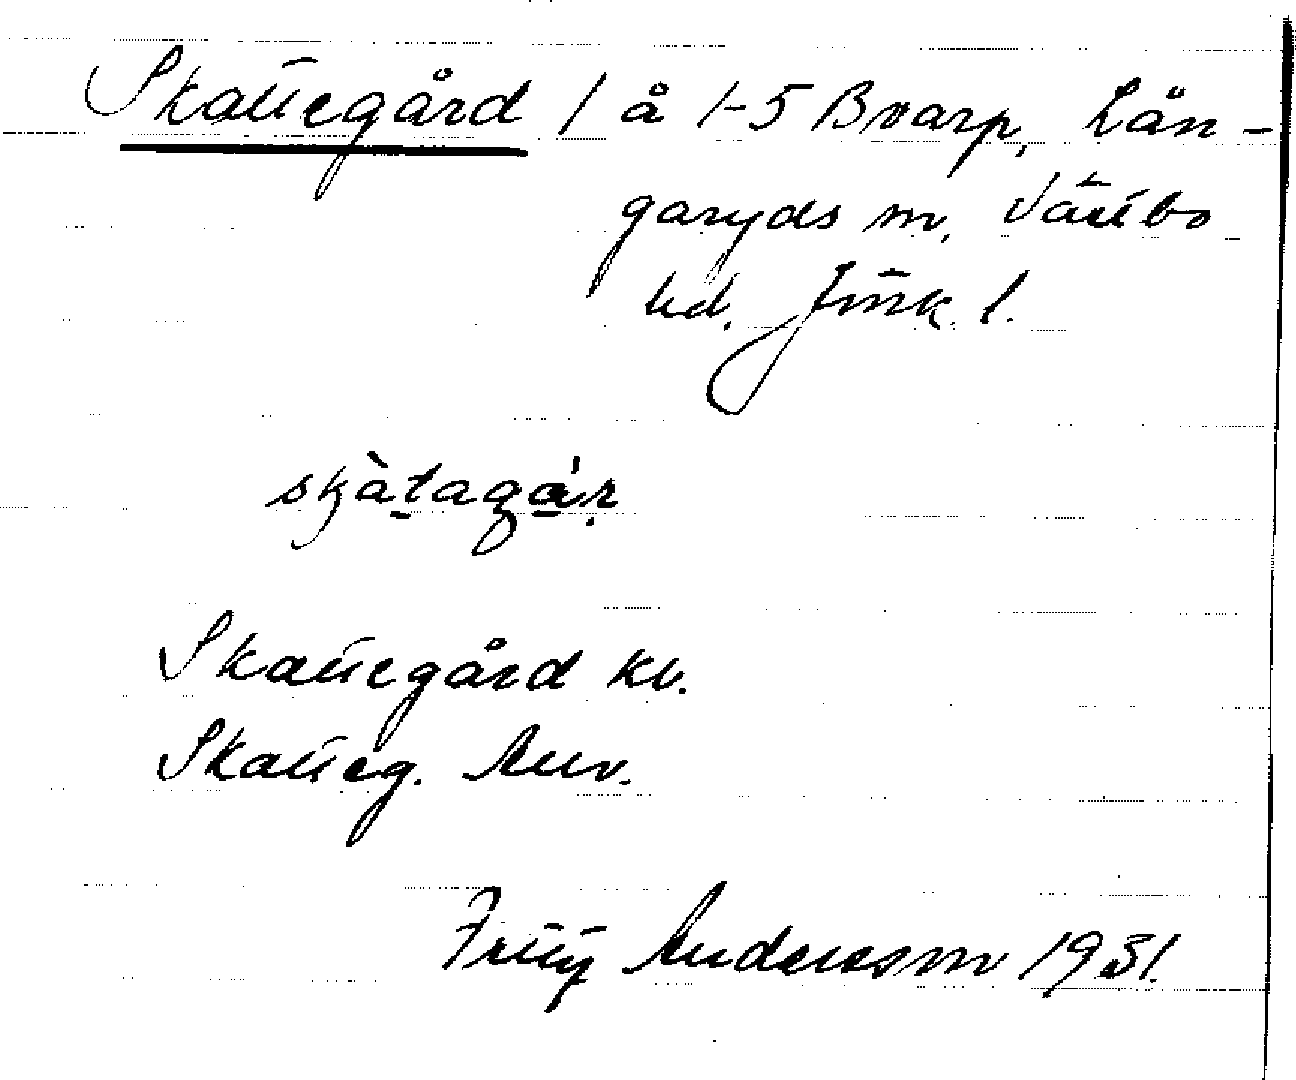 Skattegård 1 å 1-5 Bvarp, Lån-
garyds sn, Västbo
hd. Jönk. l.
skàtagár
Skattegård kv.
Skatteg. Anv.
Fritz Andersson 1931.